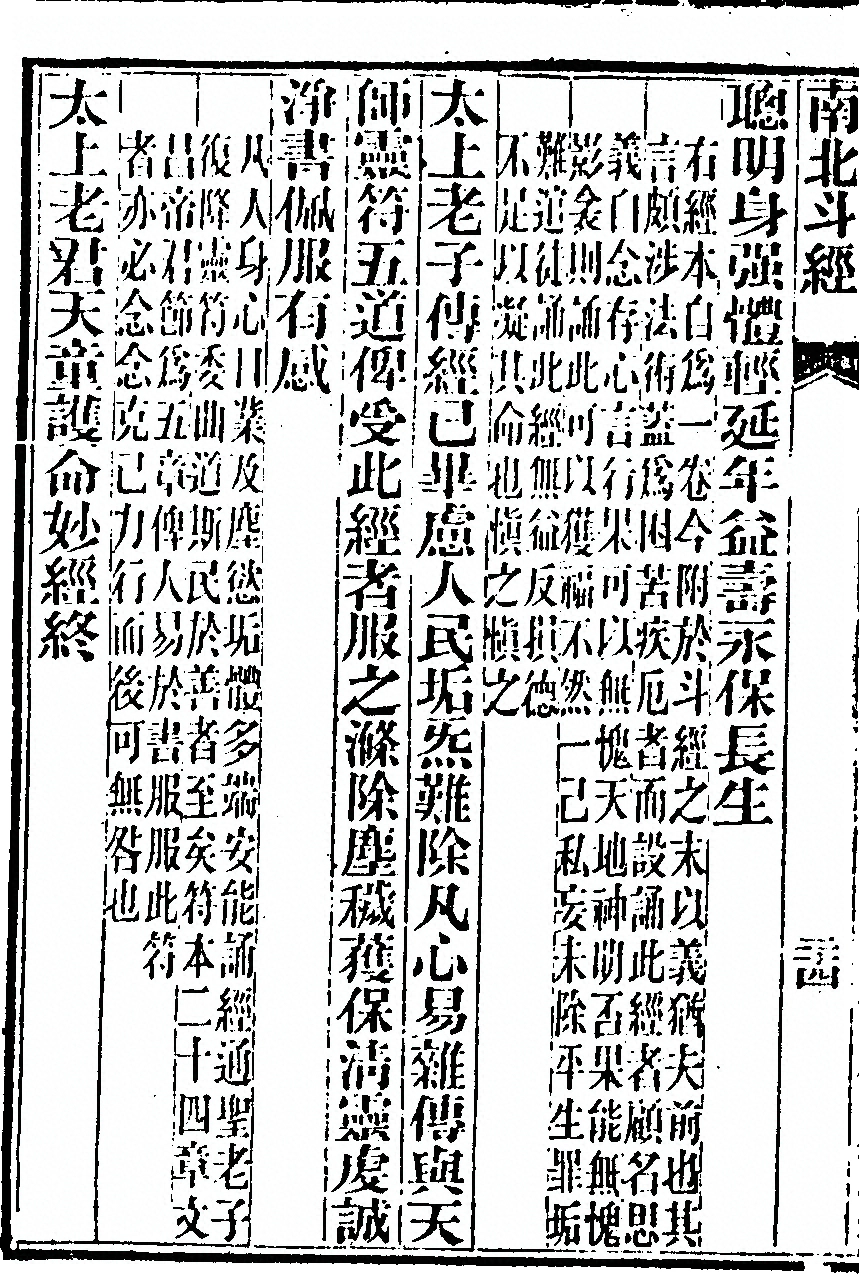 南北斗經
聰明身强體輕延年益壽永保長生
右經本自爲一卷今附於斗經之末以義猶夫前也其
言頗涉法術葢爲困苦疾厄者而設誦此經者顧名思
義自念存心言行果可以無愧天地神明否果能無愧
影衾則誦此可以獲福不然一己私妄未除平生罪垢
難逭徒誦此經無益反損德
不足以凝其命也慎之慎之
太上老子傳經已畢慮人民垢炁難除凡心易雜傳與天
師靈符五道俾受此經者服之滌除塵穢獲保淸靈虔誠
淨書佩服有感
凡人身心口業及塵慾垢體多端安能誦經通聖老子
復降靈符委曲道斯民於善者至矣符本二十四章文
昌帝君節爲五章俾人易於書服服此符
者亦必念念克己力行而後可無咎也
太上老君天童護命妙經終